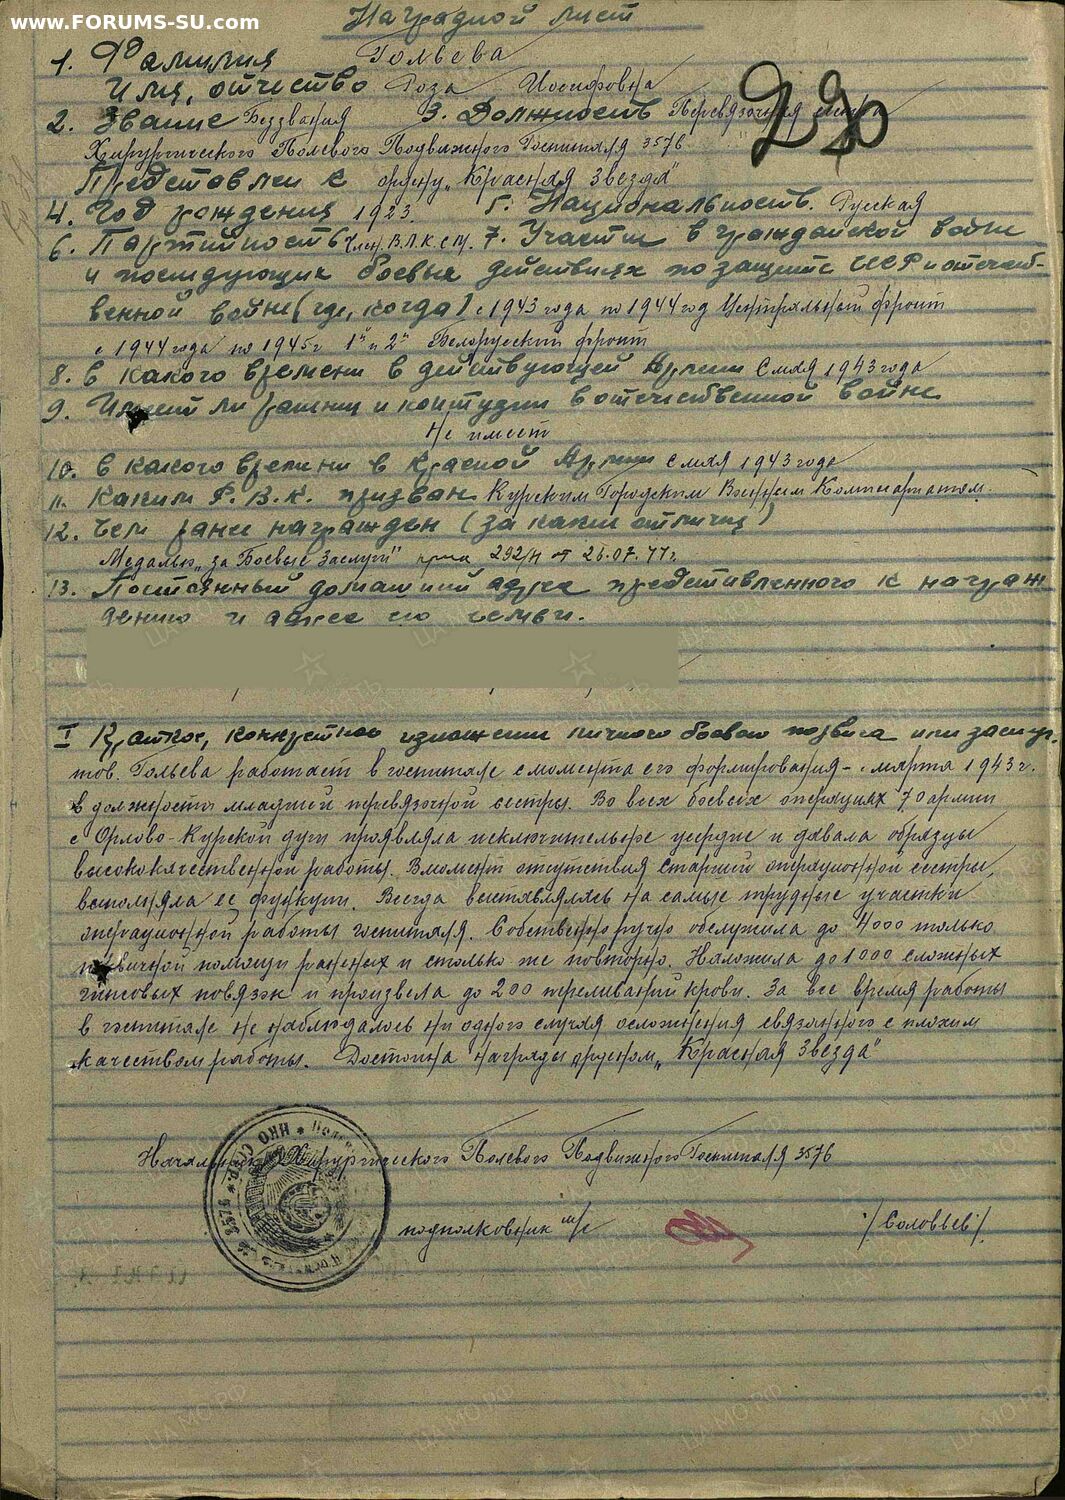 www.FORUMS-SU.com
Наградной лист
1. Фамилия Гольева
Имя, отчество Роза Иосифовна
2. Звание Без звания 3. Должность Перевязочная сестра
Хирургического Полевого Подвижного Госпиталя 3576
Представлен к ордену „Красная Звезда"
4. Год рождения 1923. 5. Национальность. Русская
6. Партийность Член В.Л.К.С.М. 7. Участие в гражданской войне
и последующих боевых действиях по защите СССР и отечест-
венной войне (где, когда) с 1943 года по 1944 год Центральный фронт
с 1944 года по 1945 г 1й и 2й Белорусский фронт
8. С какого времени в действующей Армии С мая 1943 года
9. Имеет ли ранения и контузии в отечественной войне
Не имеет
10. С какого времени в Красной Армии с мая 1943 года
11. Каким Р.В.К. призван Курским Городским Военным Комисариатом.
12. Чем ранее награжден (за какие отличия)
Медалью „за Боевые Заслуги" 292/н от 26.07.44 г.
13. Постоянный домашний адрес представленного к награж
дению и адрес его семьи.
I Краткое, конкретное изложение личного боевого подвига или заслуг.
тов. Гольева работает в госпитале с момента его формирования - с марта 1943 г.
в должности младшей перевязочной сестры. Во всех боевых операциях 70 армии
с Орлово-Курской дуги проявляла исключительное усердие и давала образцы
высококачественной работы. В момент отсутствия старшей операционной сестры,
выполняла ее функции. Всегда выставлялась на самые трудные участки
операционной работы госпиталя. Собственноручно обслужила до 4000 только
первичной помощи раненых и столько же повторно. Наложила до 1000 сложных
гипсовых повязок и произвела до 200 переливаний крови. За все время работы
в госпитале не наблюдалось ни одного случая осложнения связанного с плохим
качеством работы. Достойна награды орденом „Красная Звезда"
Начальник Хирургического Полевого Подвижного Госпиталя 3576
подполковник м/с /Соловьев/
НКО СССР